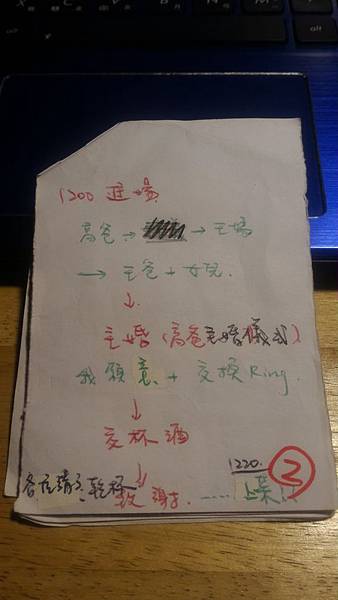 1200 進場
高爸 → → 主場
→ 王爸 + 女兒.
↓
主婚 (高爸主婚儀式)
我願意 + 交換 Ring.
↓
交杯酒
↓
1220. ②
各位請乾杯 致謝. ...... 上菜